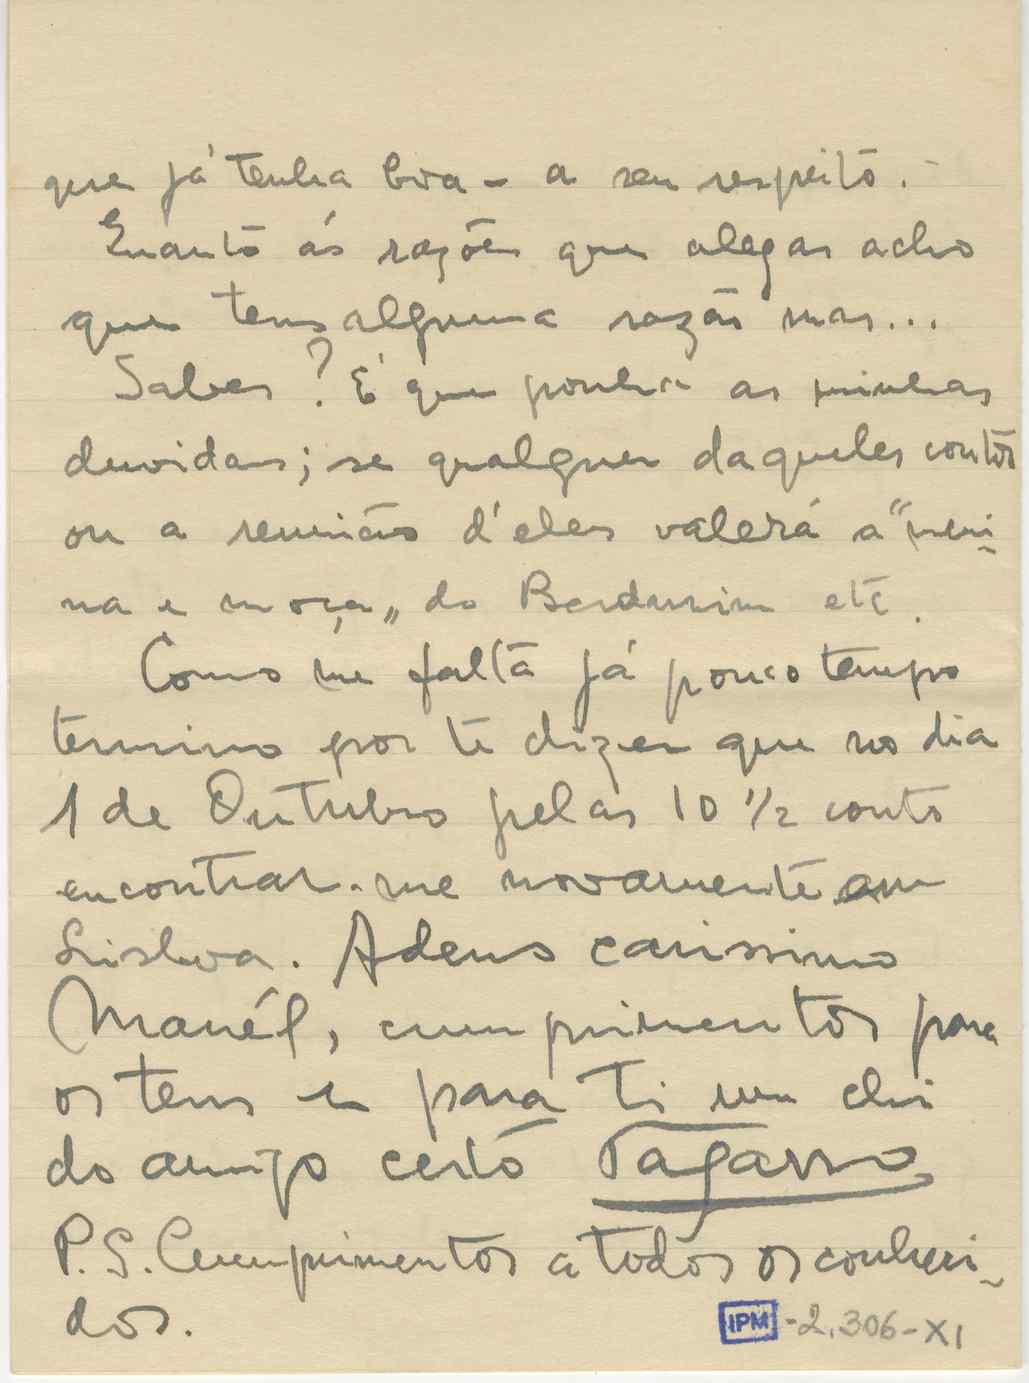 que já tenha boa - a seu respeito. -
Quanto ás razões que alegas acho
que tens alguma razão mas...
Sabes? É que ponho as minhas
duvidas; se qualquer daqueles contos
ou a reunião d'eles valerá a "meni-
na e moça" do Bernardim etc.
Como me falta já pouco tempo
termino por te dizer que no dia
1 de Outubro pelas 10 1/2 conto
encontrar-me novamente em
Lisboa. Adeus carissimo
Manél, cumprimentos para
os teus e para Ti um chi
do amigo certo Tagarro
P.S. Cumprimentos a todos os conheci-
dos.
IPM -2.306-XI